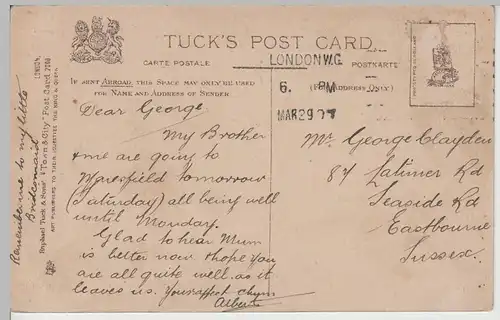 TUCK'S POST CARD
CARTE POSTALE
POSTKARTE
LONDON.W.C.
6. PM
MAR 29 07
(IF SENT ABROAD, THIS SPACE MAY ONLY BE USED
FOR NAME AND ADDRESS OF SENDER
(FOR ADDRESS ONLY.)
Dear George.
My Brother
& me are going to
Maresfield tomorrow
(Saturday) all being well
until Monday.
Glad to hear Mum
is better now & hope you
are all quite well. as it
leaves us. Your affect chum
Albert
Mr George Clayden
87 Latimer Rd
Seaside Rd
Eastbourne
Sussex.
Remember me to my little
Bridesmaid
Raphael Tuck & Sons' "Town & City" Post Card
LONDON.
ART PUBLISHERS TO THEIR MAJESTIES THE KING & QUEEN.